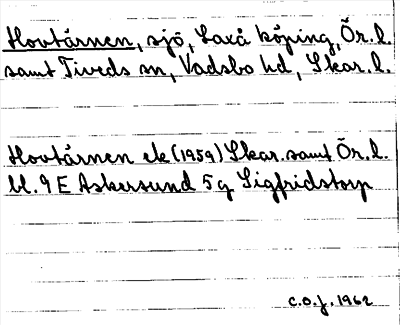 Hovtärnen, sjö, Laxå köping, Ör. l.
samt Tiveds sn, Vadsbo hd, Skar. l.
Hovtärnen ek (1959) Skar. samt Ör. l.
bl. 9 E Askersund 5 g Sigfridstorp
C.O.J. 1962